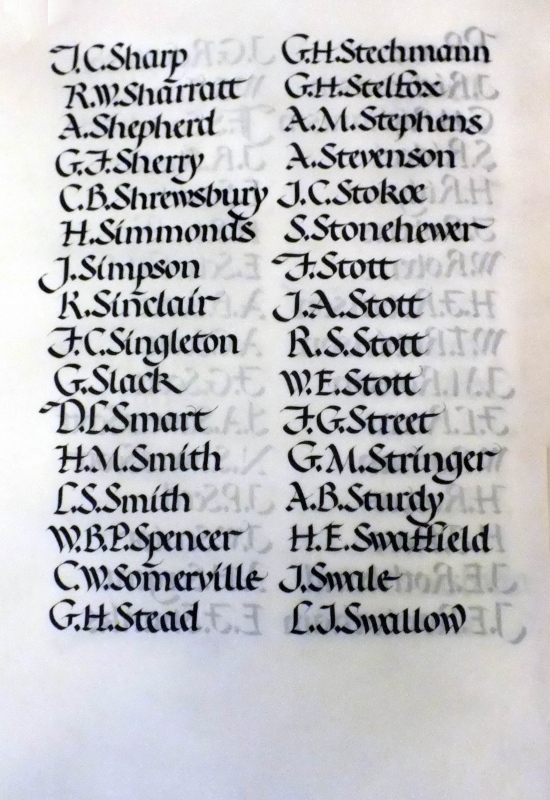 J.C.Sharp
R.W.Sharratt
A.Shepherd
G.F.Sherry
C.B.Shrewsbury
H.Simmonds
J.Simpson
K.Sinclair
F.C.Singleton
G.Slack
D.L.Smart
H.M.Smith
L.S.Smith
W.B.P.Spencer
C.W.Somerville
G.H.Stead
G.H.Stechmann
G.H.Stelfox
A.M.Stephens
A.Stevenson
J.C.Stokoe
S.Stonehewer
F.Stott
J.A.Stott
R.S.Stott
W.E.Stott
F.G.Street
G.M.Stringer
A.B.Sturdy
H.E.Swaffield
J.Swale
L.J.Swallow